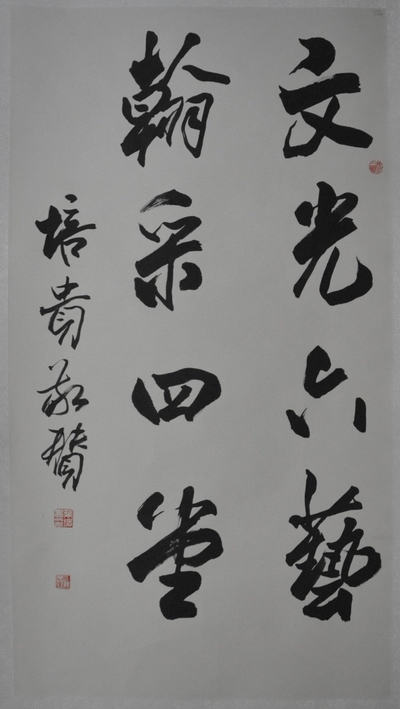 文光六藝
翰采四堂
培貴敬贊